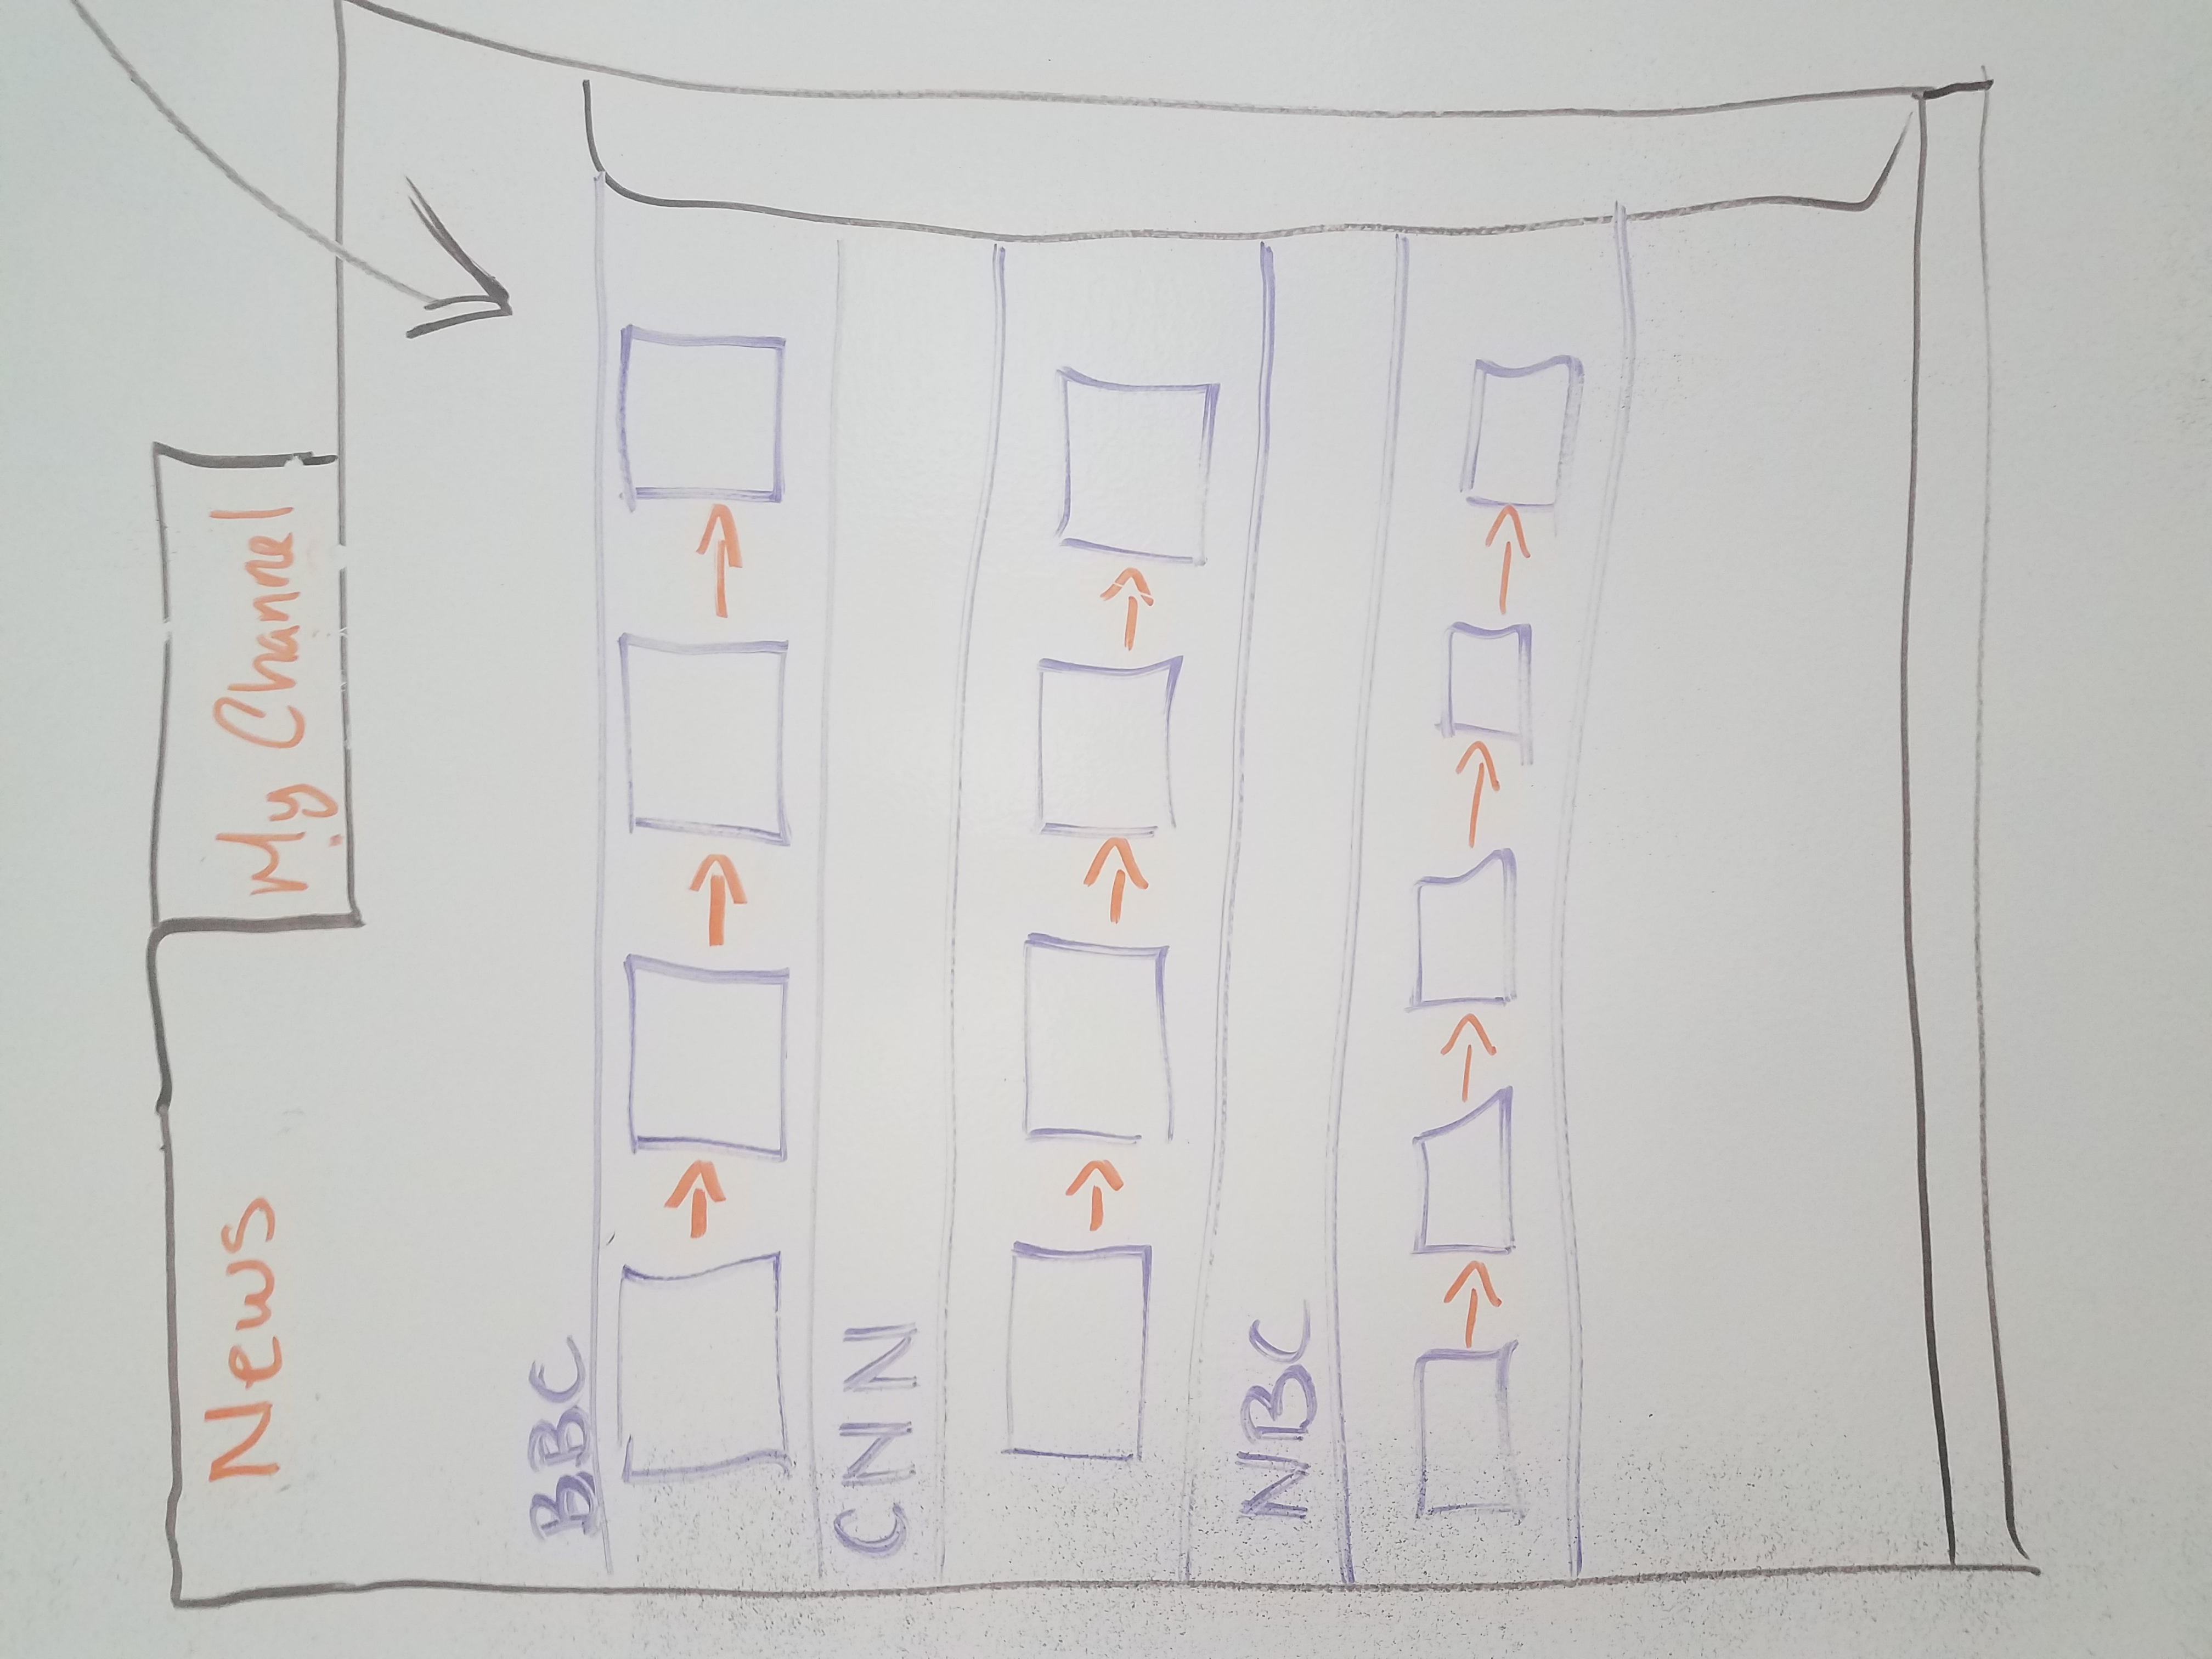 News
My Channel
BBC
CNN
NBC